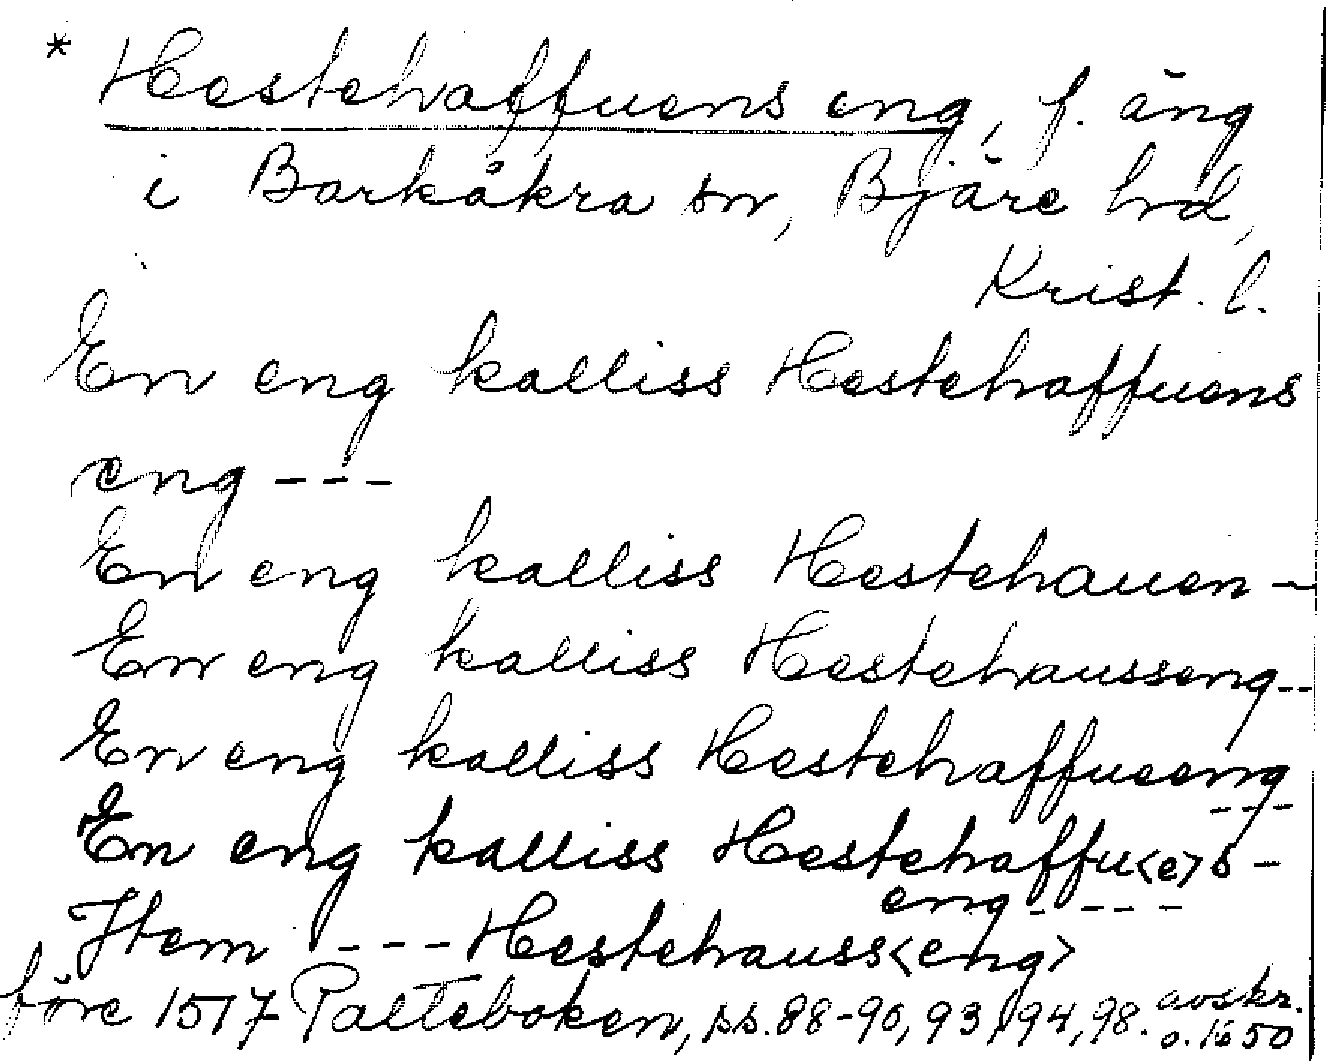 * Hestehaffuens eng, f. äng
i Barkåkra sn, Bjäre hd,
Krist. l.
En eng kalliss Hestehaffuens
eng ---
En eng kalliss Hestehauen -
En eng kalliss Hestehausseng--
En eng kalliss Hestehaffueeng
---
En eng kalliss Hestehaffu<e>s-
eng ----
Item --- Hestehauss<eng>
före 1517 Palteboken, ss. 88-90, 93, 94, 98. avskr.
o. 1650